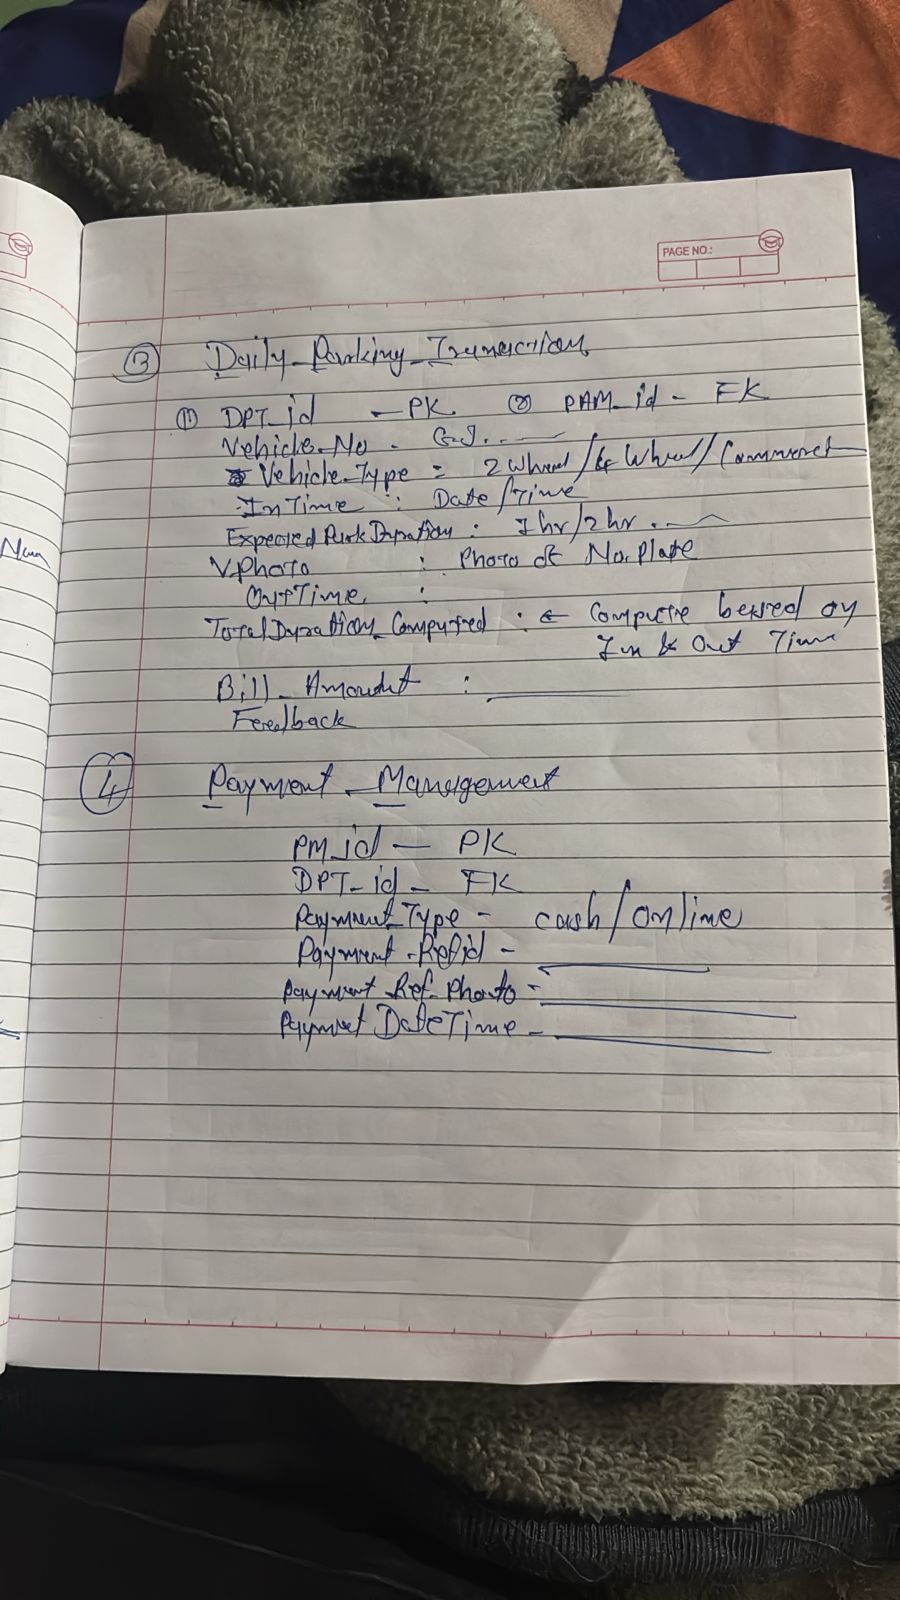 PAGE NO.:
③ Daily_Parking_Transaction
① DPT_id - PK ② PAM_id - FK
Vehicle_No - GJ.
Vehicle_Type = 2 Wheel / 4 Wheel /
InTime : Date/Time
Expected Park Duration : 1hr/2hr.
V.Photo : Photo of No. Plate
OutTime :
TotalDuration_Computed : ← Compute based on
In & Out Time
Bill_Amount :
Feedback
④ Payment_Management
PM_id — PK
DPT_id - FK
Payment_Type - cash/online
Payment_Refid -
Payment_Ref_Photo -
Payment DateTime -